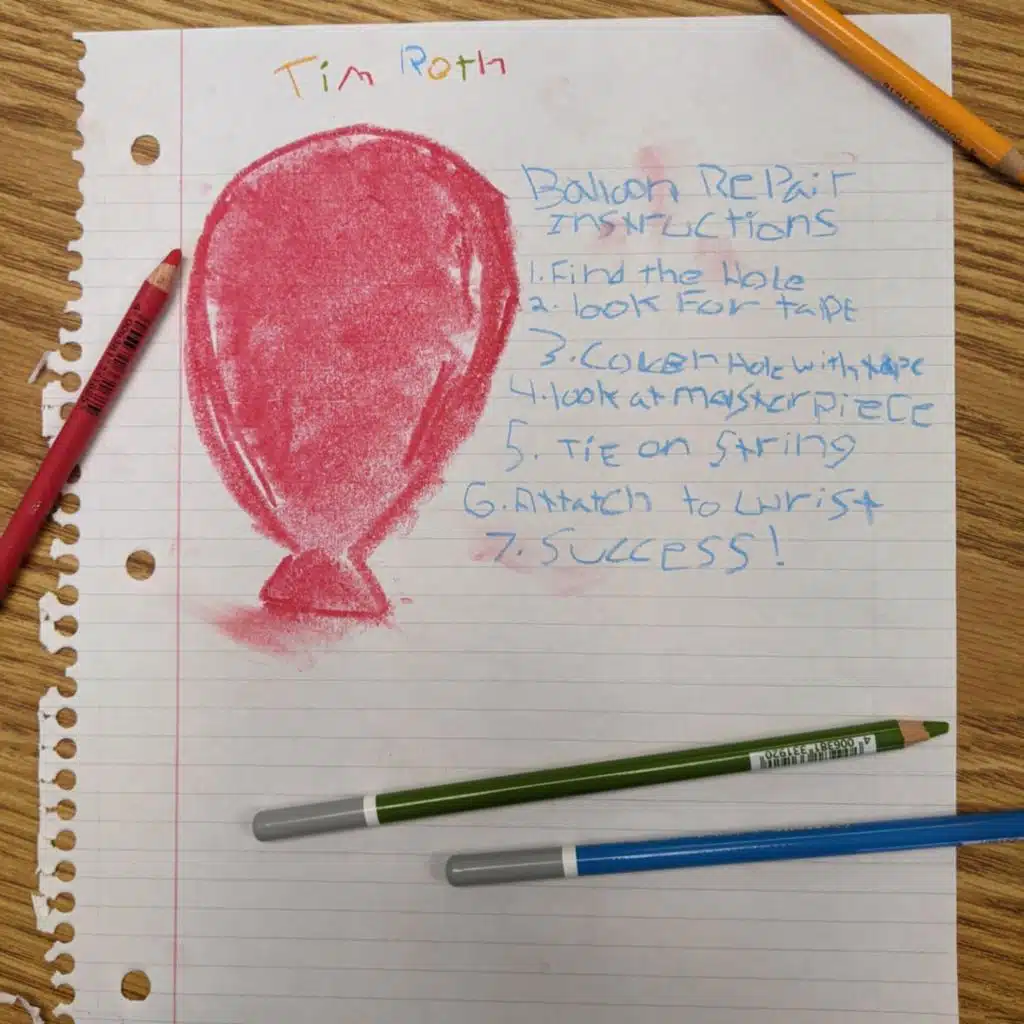 Tim Roth
Balloon Repair
Instructions
1. Find the Hole
2. look For tape
3. Cover Hole with tape
4. look at masterpiece
5. Tie on String
6. Attatch to wrist
7. Success!
4 006381 331920